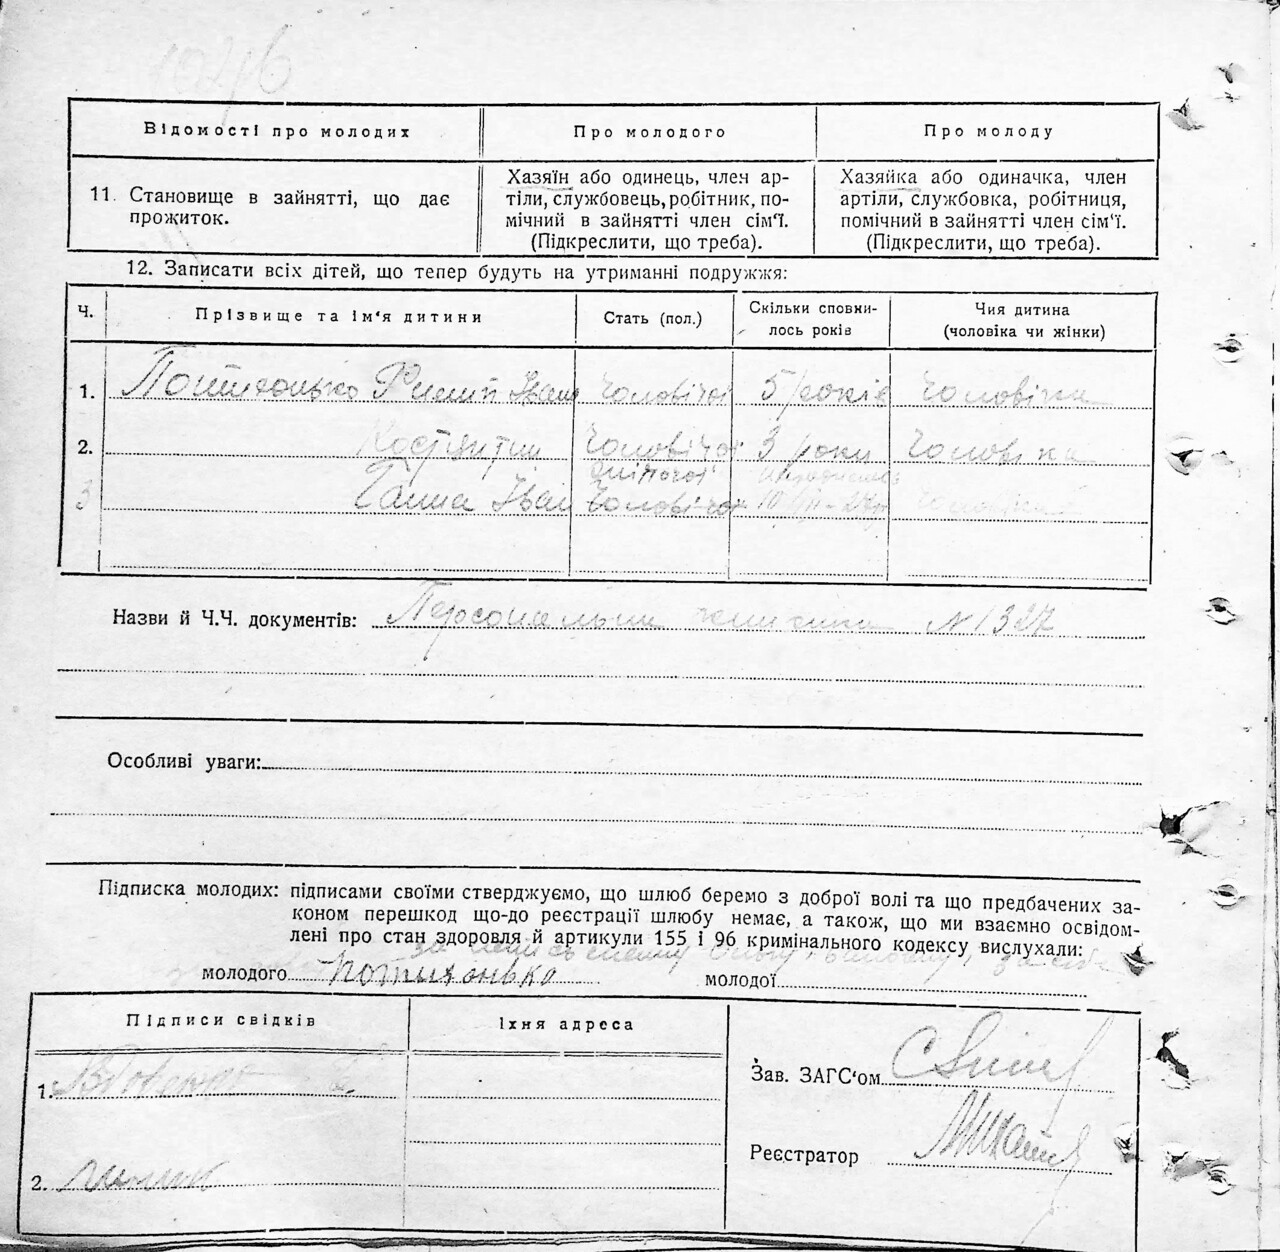 1046
Відомості про молодих
Про молодого
Про молоду
11. Становище в зайнятті, що дає
прожиток.
Хазяїн або одинець, член ар-
тіли, службовець, робітник, по-
мічний в зайнятті член сім'ї.
(Підкреслити, що треба).
Хазяйка або одиначка, член
артіли, службовка, робітниця,
помічний в зайнятті член сім'ї.
(Підкреслити, що треба).
12. Записати всіх дітей, що тепер будуть на утриманні подружжя:
Ч.
Прізвище та ім'я дитини
Стать (пол.)
Скільки сповни-
лось років
Чия дитина
(чоловіка чи жінки)
1. Потихонько Іван Чоловічої 5 років Чоловіка
2. Чоловічої 3 роки Чоловіка
жіночої
3 Ганна Іван Чоловічої
Назви й Ч.Ч. документів: Персональна книжка № 1327
Особливі уваги:
Підписка молодих: підписами своїми стверджуємо, що шлюб беремо з доброї волі та що предбачених за-
коном перешкод що-до реєстрації шлюбу немає, а також, що ми взаємно освідом-
лені про стан здоровля й артикули 155 і 96 кримінального кодексу вислухали:
молодого Потихонько молодої
Підписи свідків
Їхня адреса
1.
Зав. ЗАГС'ом
Реєстратор
2.